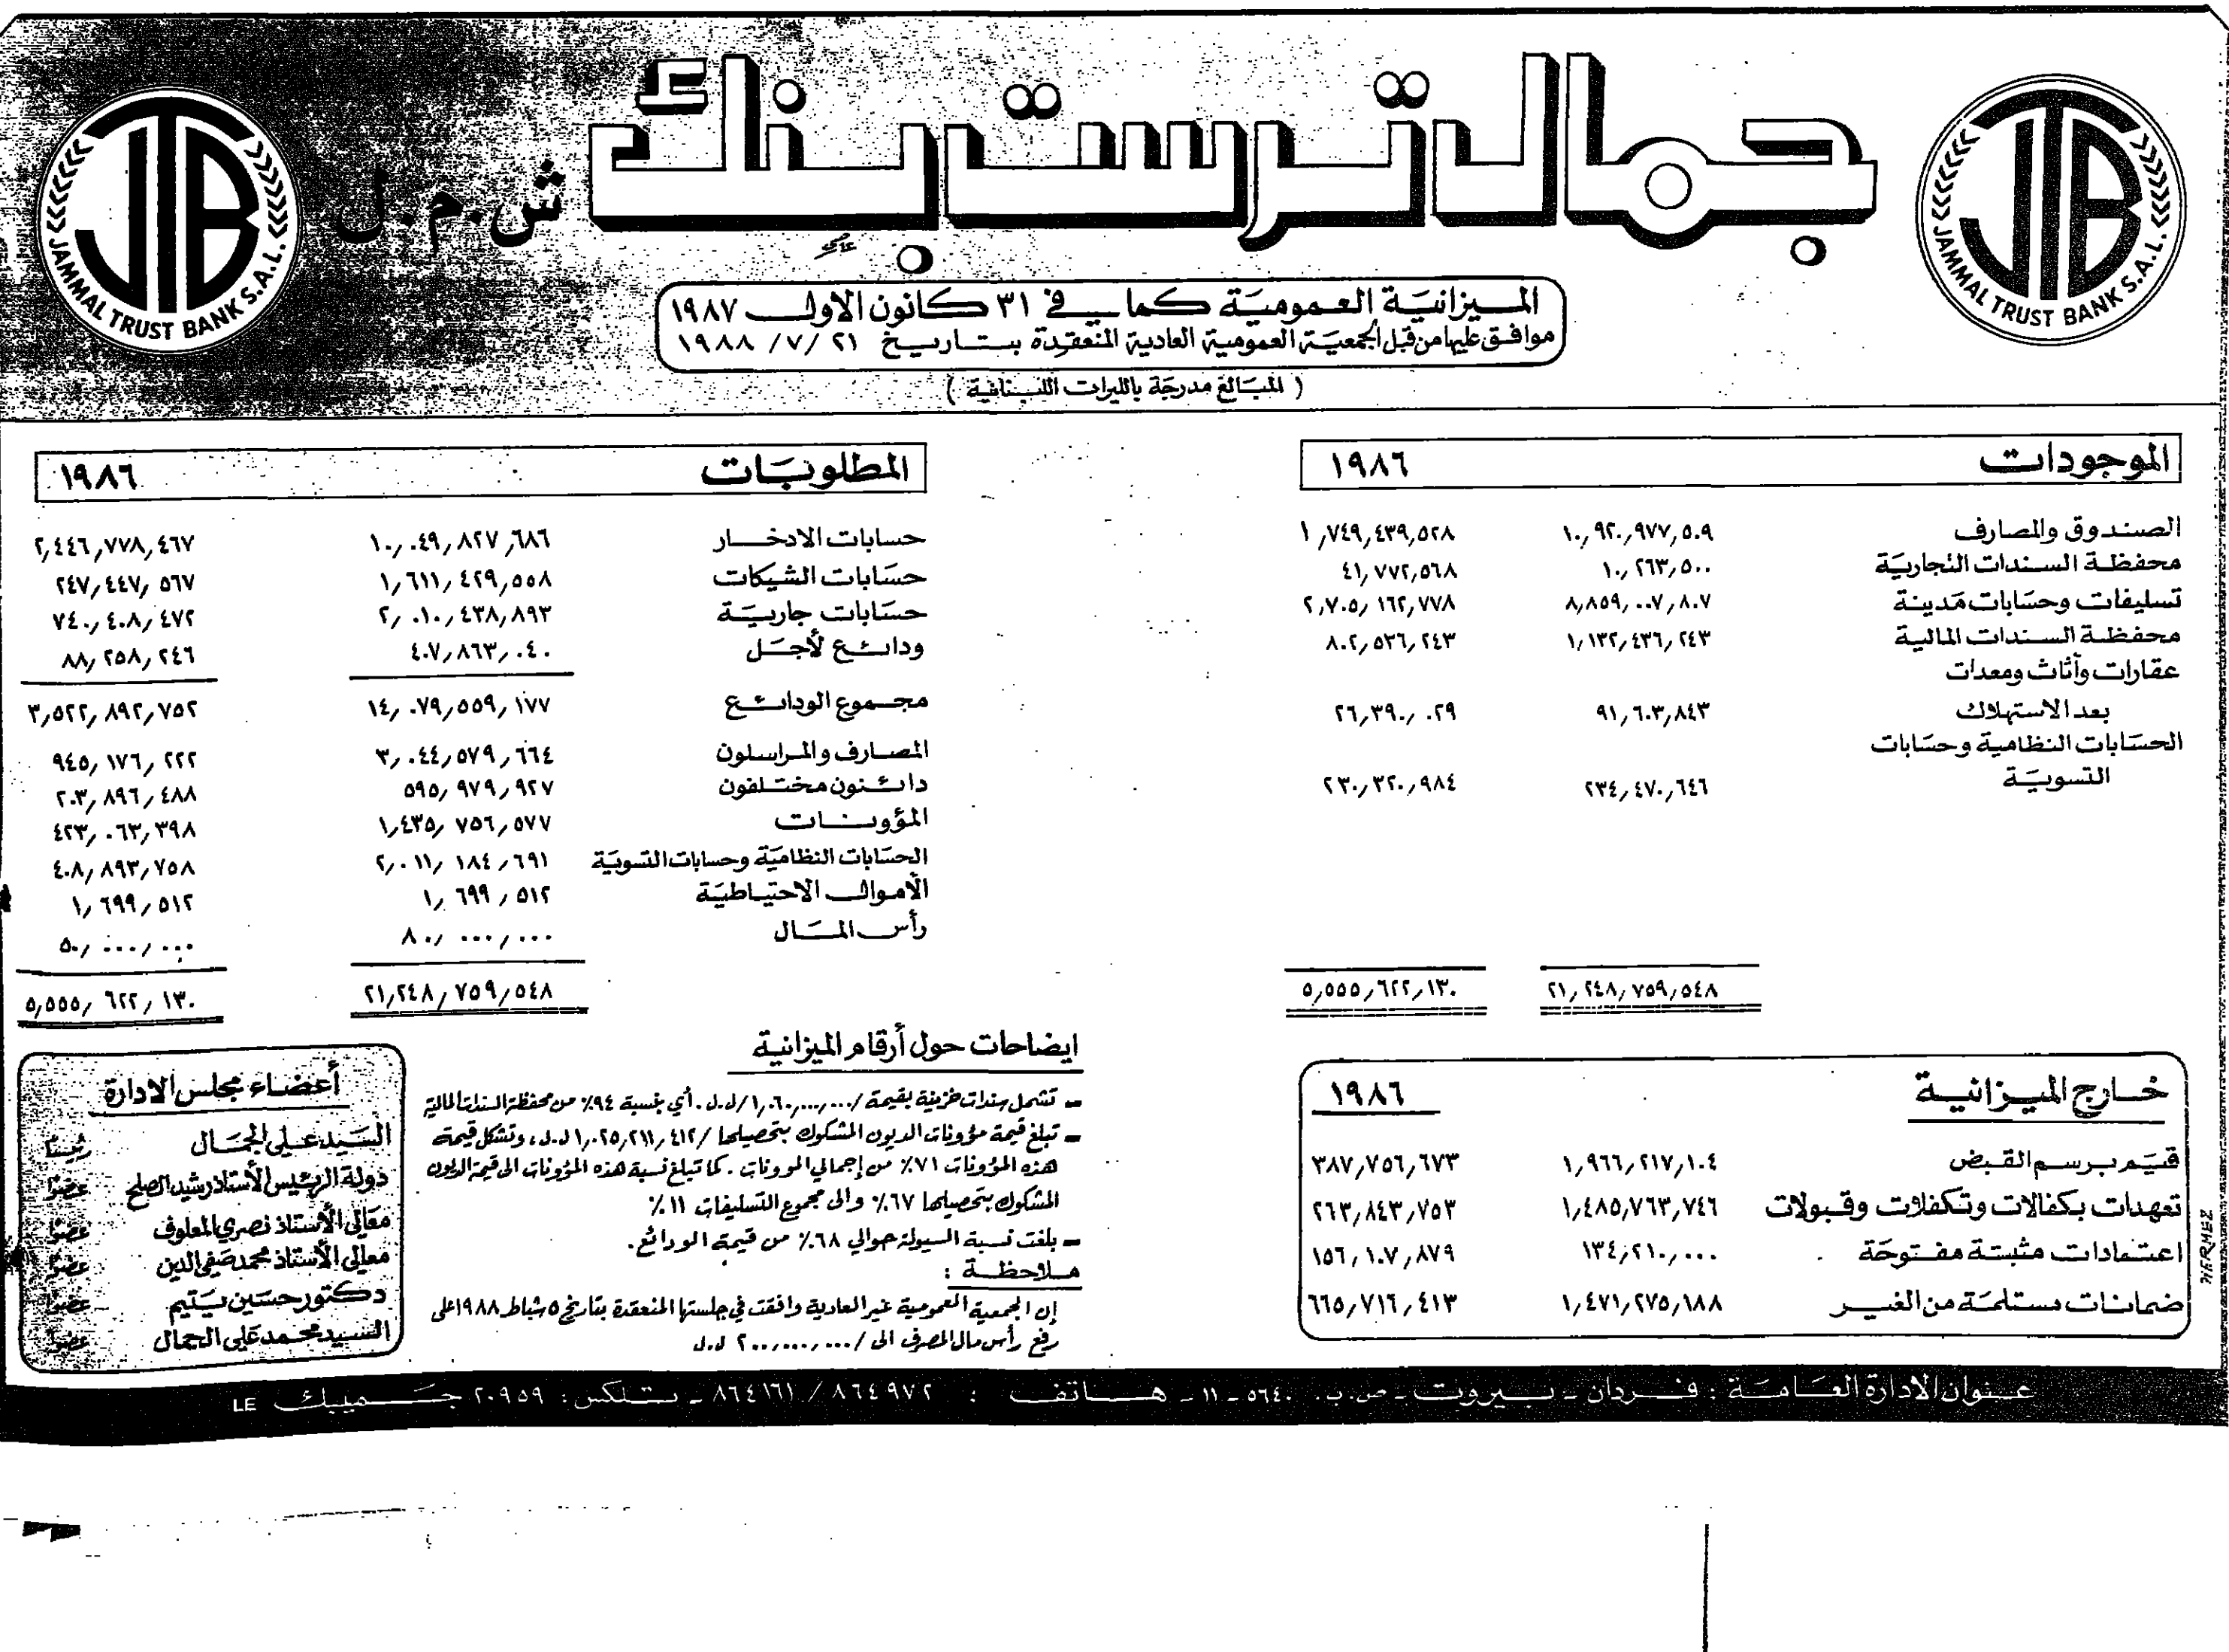 JAMMAL TRUST BANK S.A.L.
جمال ترست بنك ش.م.ل
JAMMAL TRUST BANK S.A.L.
الميزانية العمومية كما في ٣١ كانون الاول ١٩٨٧
موافق عليها من قبل الجمعية العمومية العادية المنعقدة بتاريخ ٢١ /٧/ ١٩٨٨
( المبالغ مدرجة بالليرات اللبنانية )
الموجودات ١٩٨٦
الصندوق والمصارف ١٠,٩٢٠,٩٧٧,٥٠٩ ١,٧٤٩,٤٣٩,٥٢٨
محفظة السندات التجارية ١٠,٢٦٣,٥٠٠ ٤١,٧٧٢,٥٦٨
تسليفات وحسابات مدينة ٨,٨٥٩,٠٠٧,٨٠٧ ٢,٧٠٥,١٦٢,٧٧٨
محفظة السندات المالية ١,١٣٢,٤٣٦,٢٤٣ ٨٠٢,٥٣٦,٢٤٣
عقارات وأثاث ومعدات
بعد الاستهلاك ٩١,٦٠٣,٨٤٣ ٢٦,٣٩٠,٠٢٩
الحسابات النظامية وحسابات
التسوية ٢٣٤,٤٧٠,٦٤٦ ٢٣٠,٣٢٠,٩٨٤
٢١,٢٤٨,٧٥٩,٥٤٨ ٥,٥٥٥,٦٢٢,١٣٠
المطلوبات ١٩٨٦
حسابات الادخار ١٠,٠٤٩,٨٢٧,٦٨٦ ٢,٤٤٦,٧٧٨,٤٦٧
حسابات الشيكات ١,٦١١,٤٢٩,٥٥٨ ٢٤٧,٤٤٧,٥٦٧
حسابات جارية ٢,٠١٠,٤٣٨,٨٩٣ ٧٤٠,٤٠٨,٤٧٢
ودائع لأجل ٤٠٧,٨٦٣,٠٤٠ ٨٨,٢٥٨,٢٤٦
مجموع الودائع ١٤,٠٧٩,٥٥٩,١٧٧ ٣,٥٢٢,٨٩٢,٧٥٢
المصارف والمراسلون ٣,٠٤٤,٥٧٩,٦٦٤ ٩٤٥,١٧٦,٢٢٢
دائنون مختلفون ٥٩٥,٩٧٩,٩٢٧ ٢٠٣,٨٩٦,٤٨٨
المؤونات ١,٤٣٥,٧٥٦,٥٧٧ ٤٢٣,٠٦٣,٣٩٨
الحسابات النظامية وحسابات التسوية ٢,٠١١,١٨٤,٦٩١ ٤٠٨,٨٩٣,٧٥٨
الأموال الاحتياطية ١,٦٩٩,٥١٢ ١,٦٩٩,٥١٢
رأس المال ٨٠,٠٠٠,٠٠٠ ٥٠,٠٠٠,٠٠٠
٢١,٢٤٨,٧٥٩,٥٤٨ ٥,٥٥٥,٦٢٢,١٣٠
خارج الميزانية ١٩٨٦
قيم برسم القبض ١,٩٦٦,٢١٧,١٠٤ ٣٨٧,٧٥٦,٦٧٣
تعهدات بكفالات وتكفلات وقبولات ١,٤٨٥,٧٦٣,٧٤٦ ٢٦٣,٨٤٣,٧٥٣
اعتمادات مثبتة مفتوحة ١٣٤,٢١٠,٠٠٠ ١٥٦,١٠٧,٨٧٩
ضمانات مستلمة من الغير ١,٤٧١,٢٧٥,١٨٨ ٦٦٥,٧١٦,٤١٣
HERMEZ
ايضاحات حول أرقام الميزانية
- تشمل سندات خزينة بقيمة /١,٠٦٠,٠٠٠,٠٠٠/ ل.ل. أي بنسبة ٩٤٪ من محفظة السندات المالية
- تبلغ قيمة مؤونات الديون المشكوك بتحصيلها /١,٠٢٥,٢١١,٤١٢ ل.ل، وتشكل قيمة
هذه المؤونات ٧١٪ من إجمالي المؤونات. كما تبلغ نسبة هذه المؤونات الى قيمة الديون
المشكوك بتحصيلها ٦٧٪ والى مجموع التسليفات ١١٪
- بلغت نسبة السيولة حوالي ٦٨٪ من قيمة الودائع.
ملاحظة :
إن الجمعية العمومية غير العادية وافقت في جلستها المنعقدة بتاريخ ٥ شباط ١٩٨٨ على
رفع رأس مال المصرف الى /٢٠٠,٠٠٠,٠٠٠ ل.ل
أعضاء مجلس الادارة
السيد علي الجمال رئيسا
دولة الرئيس الأستاذ رشيد الصلح عضوا
معالي الأستاذ نصري المعلوف عضوا
معالي الأستاذ محمد صفي الدين عضوا
دكتور حسين يتيم عضوا
السيد محمد علي الجمال عضوا
عنوان الادارة العامة : فردان - بيروت - ص.ب. ٥٦٤٠ - ١١ - هاتف : ٨٦٤٩٧٢ / ٨٦٤١٦١ - تلكس : ٢٠٩٥٩ جميبك LE